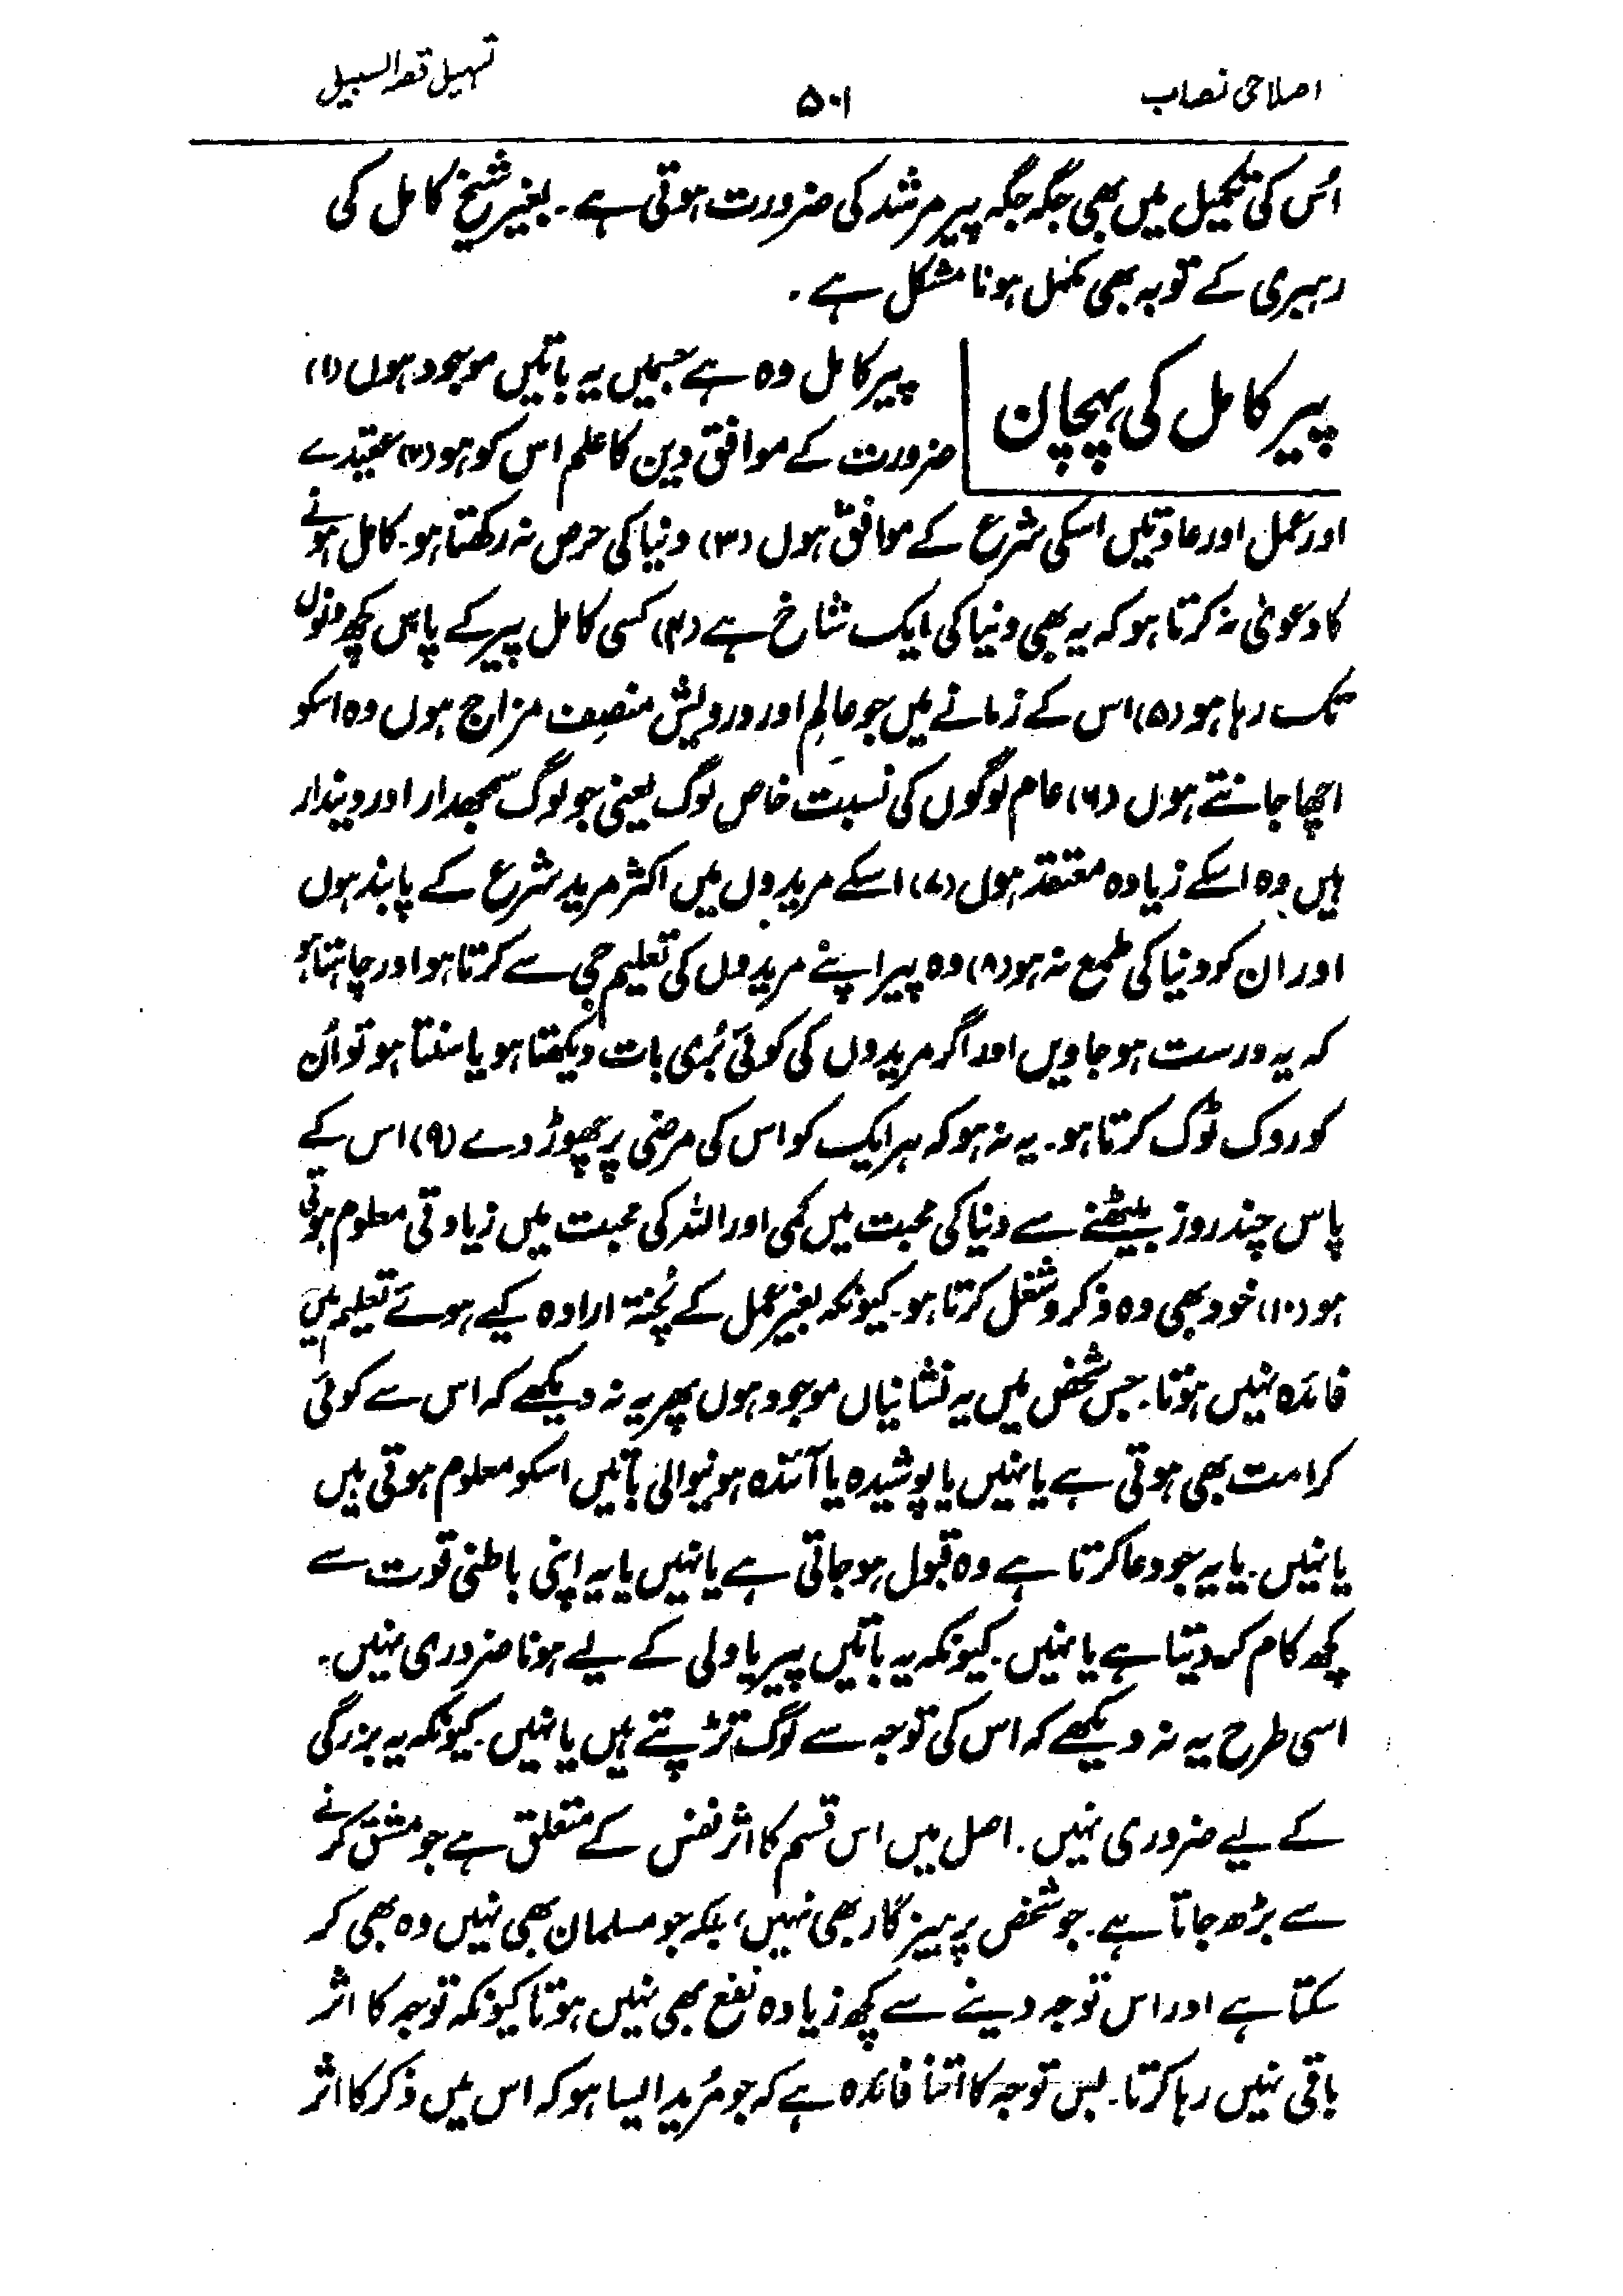 اصلاحی نصاب
۵۰۱
تسہیل قصد السبیل
اُس کی تکمیل میں بھی جگہ جگہ پیر مرشد کی ضرورت ہوتی ہے۔ بغیر شیخ کامل کی
رہبری کے توبہ بھی مکمل ہونا مشکل ہے۔
پیر کامل کی پہچان
پیر کامل وہ ہے جسمیں یہ باتیں موجود ہوں (۱)
ضرورت کے موافق دین کا علم اس کو ہو (۲) عقیدے
اور عمل اور عادتیں اسکی شرع کے موافق ہوں (۳) دنیا کی حرص نہ رکھتا ہو۔ کامل ہونے
کا دعویٰ نہ کرتا ہو کہ یہ بھی دنیا کی ایک شاخ ہے (۴) کسی کامل پیر کے پاس کچھ دنوں
تک رہا ہو (۵) اس کے زمانے میں جو عالِم اور درویش منصِف مزاج ہوں وہ اسکو
اچھا جانتے ہوں (۶) عام لوگوں کی نسبت خاص لوگ یعنی جو لوگ سمجھدار اور دیندار
ہیں وہ اسکے زیادہ معتقد ہوں (۷) اسکے مریدوں میں اکثر مرید شرع کے پابند ہوں
اور ان کو دنیا کی طمع نہ ہو (۸) وہ پیر اپنے مریدوں کی تعلیم جی سے کرتا ہو اور چاہتا ہو
کہ یہ درست ہو جاویں اور اگر مریدوں کی کوئی بُری بات دیکھتا ہو یا سنتا ہو تو اُن
کو روک ٹوک کرتا ہو۔ یہ نہ ہو کہ ہر ایک کو اس کی مرضی پر چھوڑ دے (۹) اس کے
پاس چند روز بیٹھنے سے دنیا کی محبت میں کمی اور اللہ کی محبت میں زیادتی معلوم ہوتی
ہو (۱۰) خود بھی وہ ذکر و شغل کرتا ہو۔ کیونکہ بغیر عمل کے پُختہ ارادہ کیے ہوئے تعلیم میں
فائدہ نہیں ہوتا۔ جس شخص میں یہ نشانیاں موجود ہوں پھر یہ نہ دیکھے کہ اس سے کوئی
کرامت بھی ہوتی ہے یا نہیں یا پوشیدہ یا آئندہ ہونیوالی باتیں اسکو معلوم ہوتی ہیں
یا نہیں۔ یا یہ جو دعا کرتا ہے وہ قبول ہو جاتی ہے یا نہیں یا یہ اپنی باطنی قوت سے
کچھ کام کر دیتا ہے یا نہیں۔ کیونکہ یہ باتیں پیر یا ولی کے لیے ہونا ضروری نہیں۔
اسی طرح یہ نہ دیکھے کہ اس کی توجہ سے لوگ تڑپتے ہیں یا نہیں۔ کیونکہ یہ بزرگی
کے لیے ضروری نہیں۔ اصل میں اس قسم کا اثر نفس کے متعلق ہے جو مشق کرنے
سے بڑھ جاتا ہے۔ جو شخص پرہیزگار بھی نہیں، بلکہ جو مسلمان بھی نہیں وہ بھی کر
سکتا ہے اور اس توجہ دینے سے کچھ زیادہ نفع بھی نہیں ہوتا کیونکہ توجہ کا اثر
باقی نہیں رہا کرتا۔ بس توجہ کا اتنا فائدہ ہے کہ جو مُرید ایسا ہو کہ اس میں ذکر کا اثر